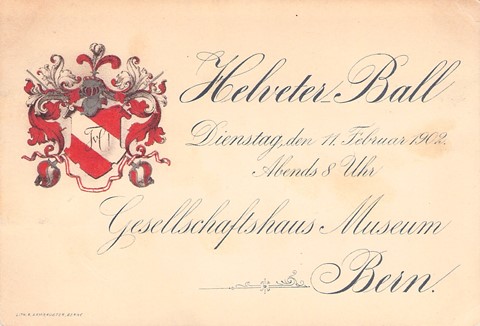 Helveter-Ball
Dienstag, den 11. Februar 1902.
Abends 8 Uhr
Gesellschaftshaus Museum
Bern.